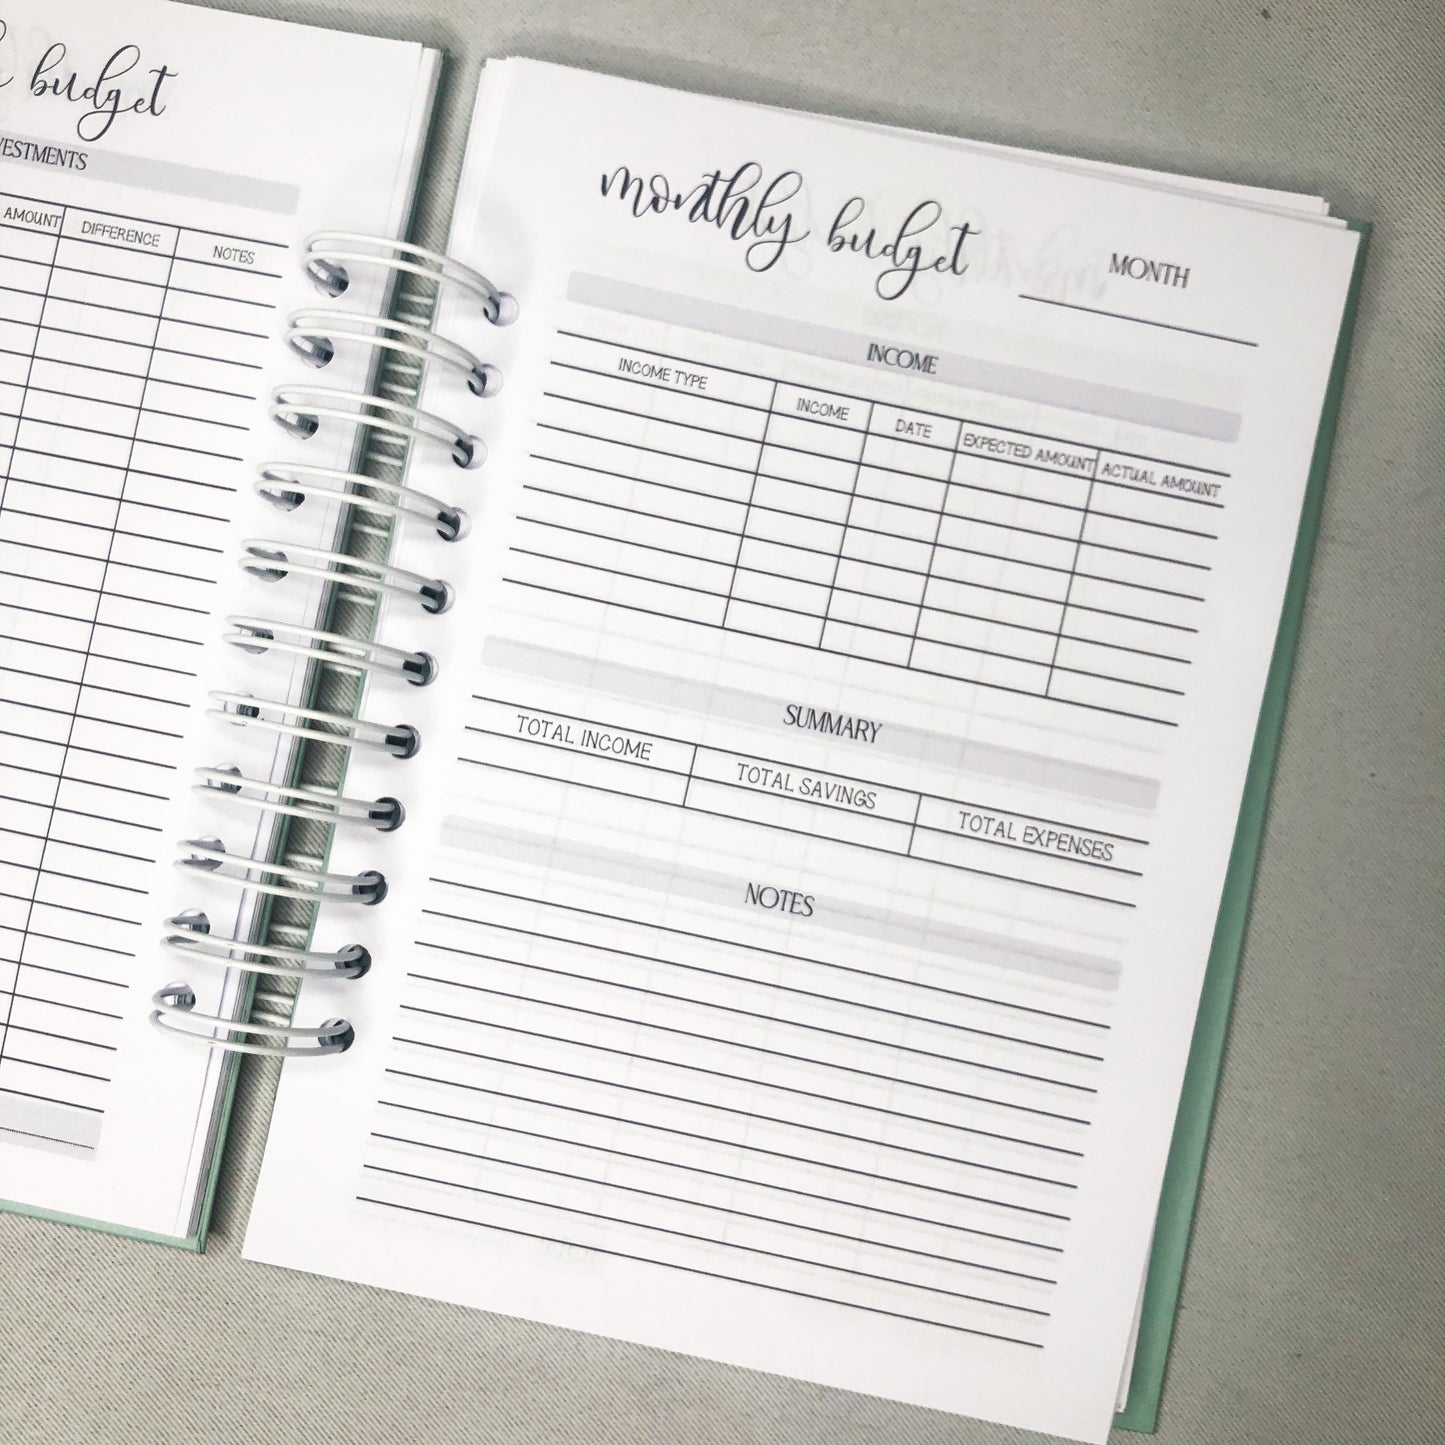 budget
AMOUNT DIFFERENCE NOTES
monthly budget
MONTH
INCOME
INCOME TYPE INCOME DATE EXPECTED AMOUNT ACTUAL AMOUNT
SUMMARY
TOTAL INCOME TOTAL SAVINGS TOTAL EXPENSES
NOTES